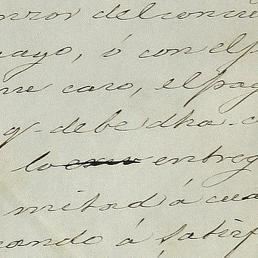 del con
mayo, ó con el p
me caso, el pag
q.e debe dha. c
lo entreg
mitad á cua
ando á satisf